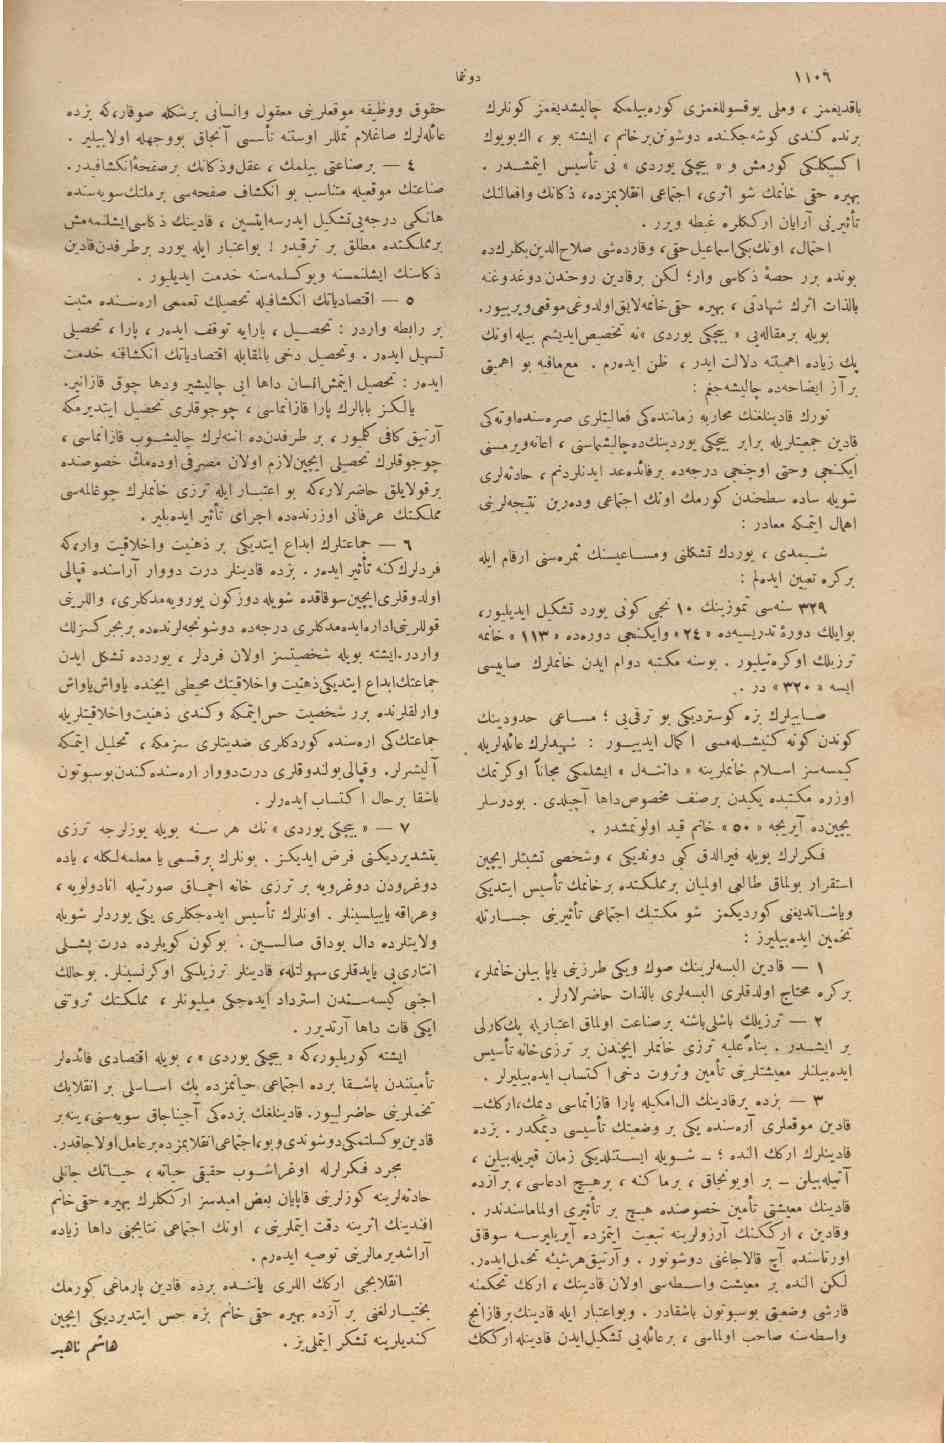 ١١٠٦
دونما
باقدیغمز ، وملی یوقسوللغمزی کوره‌بیلمکه چالیشدیغمز کونلرك
برنده کندی کوشه‌جکنده دوشونن‌برخانم ، ایشته بو ، اك‌بویوك
اکسیکلکی کورمش و « بیچکی یوردی » نی تأسیس ایتمشدر .
بهیره حقی خانمك شو اثری، اجتماعی انقلابمزده، ذکانك وافعالنك
تأثیرینی آرایان ارککلره غبطه ویرر .
احتمال، اونك‌یکی‌اسماعیل‌حقی، وقارده‌شی صلاح‌الدین‌بکلرك‌ده
بونده برر حصهٔ ذکاسی وار؛ لکن برقادین روحندن‌دوغدوغنه
بالذات اثرك شهادتی ، بهیره حقی‌خانمه‌لایق‌اولدوغی‌موقعی‌ویریور.
بویله برمقاله‌یی « بیچکی یوردی »نه تخصیص‌ایدیشم بیله‌اونك
پك زیاده اهمیتنه دلالت ایدر ، ظن ایده‌رم . مع‌مافیه بو اهمیتی
بر آز ایضاحه‌ده چالیشه‌جغم :
تورك قادینلغنك محاربه زماننده‌کی فعالیتلری صره‌سنده‌اوته‌کی
قادین جمعیتلریله برابر بیچکی یوردینك‌ده‌چالیشماسنی ، اعانه‌ویرمسنی
ایکنجی وحتی اوچنجی درجه‌ده برفائده‌عد ایدنلردنم ، حادثه‌لری
شویله ساده سطحندن کورمك اونك اجتماعی وده‌رین نتیجه‌لرینی
اهمال ایتمکه معادلدر :
شیمدی ، یوردك تشکلنی ومساعیسنك ثمره‌سنی ارقام ایله
برکره تعیین ایده‌لم :
٣٢٩ سنه‌سی تموزینك ١٠ نجی کونی یورد تشکیل ایدیلیور،
بوایلك دورهٔ تدریسیه‌ده « ٢٤ » وایکنجی دوره‌ده « ١١٣ » خانمه
ترزیلك اوکره‌تیلیور . بوسنه مکتبه دوام ایدن خانملرك صاییسی
ایسه « ٣٢٠ » در .
صاییلرك بزه کوستردیکی بو ترقی‌یی ؛ مساعی حدودینك
کوندن کونه کنیشله‌مسی اکمال ایدییور : شهیدلرك عائله‌لریله
کیمسه‌سز اسلام خانملرینه « دانته‌ل » ایشلمکی مجاناً اوکرتمك
اوزره مکتبده یکیدن برصنف مخصوص‌داها آچیلدی . بودرسلر
ایچین‌ده آیریجه « ٥٠ » خانم قید اولونمشدر .
فکرلرك بویله فیرالدق کبی دوندیکی ، وشخصی تشبثلر ایچین
استقرار بولماق طالعی اولمیان برمملکتده برخانمك تأسیس ایتدیکی
ویاشاتدیغنی کوردیکمز شو مکتبك اجتماعی تأثیرینی جسارتله
تخمین ایده‌بیلیرز :
١ — قادین البسه‌لرینك صوك ویکی طرزینی یاپا بیلن‌خانملر،
برکره محتاج اولدقلری البسه‌لری بالذات حاضرلارلر .
٢ — ترزیلك باشلی‌باشنه برصنعت اولماق اعتباریله پك‌کارلی
بر ایشدر . بناءً علیه ترزی خانملر ایچندن بر ترزی‌خانه تأسیس
ایده‌بیلنلر معیشتلرینی تأمین وثروت دخی اکتساب ایده‌بیلیرلر .
٣ — بزده برقادینك ال‌امکیله پارا قازانماسی دیمك،ارکك–
قادین موقعلری آره‌سنده یکی بر وضعیتك تأسیسی دیمکدر . بزده
قادینلرك ارکك النده ؛ – شویله ایستنلدیکی زمان قیریله‌بیلن ،
آتیله‌بیلن – بر اویونجاق ، برماکنه ، برهیچ ادعاسی ، برآزده
قادینك معیشتی تأمین خصوصنده هیچ بر تأثیری اولماماسندندر .
وقادین ، ارککنك آرزولرینه تبعیت ایتمزده آیریلیرسه سوقاق
اورتاسنده آچ قالاجاغنی دوشونور . وآرتیق‌هرشیئه تحمل‌ایده‌ر.
لکن النده بر معیشت واسطه‌سی اولان قادینك ، ارکك تحکمنه
قارشی وضعیتی بوسبوتون باشقادر . وبواعتبار ایله قادینك‌برقازانج
واسطه‌سنه صاحب اولماسی ، برعائله‌یی تشکیل‌ایدن قادینله ارککك
حقوق ووظیفه موقعلرینی معقول وانسانی برشکله صوقار،که بزده
عائله‌لرك صاغلام تمللر اوستنه تأسسی آنجاق بووجهله اولابیلیر .
٤ — برصناعتی بیلمك ، عقل‌وذکانك برصفحهٔ‌انکشافیدر.
صناعتك موقعیله متناسب بو انکشاف صفحه‌سی برملتك‌سویه‌سنده
هانکی درجه‌یی‌تشکیل ایدرسه‌ایتسین ، قادینك ذکاسی‌ایشلنمه‌مش
برمملکتده مطلق بر ترقیدر ! بواعتبار ایله یورد برطرفدن‌قادین
ذکاسنك ایشلنمسنه ویوکسلمه‌سنه خدمت ایدیلیور .
٥ — اقتصادیاتك انکشافیله تحصیلك تعممی اره‌سنده مثبت
بر رابطه واردر : تحصیل ، پارایه توقف ایده‌ر ، پارا ، تحصیلی
تسهیل ایده‌ر . وتحصیل دخی بالمقابله اقتصادیاتك انکشافنه خدمت
ایده‌ر : تحصیل ایتمش‌انسان داها ایی چالیشیر ودها چوق قازانیر.
یالکز بابالرك پارا قازانماسی ، چوجوقلری تحصیل ایتدیرمکه
آرتیق کافی کلمیور ، بر طرفدن‌ده انه‌لرك چالیشوب قازانماسی ،
چوجوقلرك تحصیلی ایچین‌لازم اولان مصرفی اوده‌مك خصوصنده
برقولایلق حاضرلار،که بو اعتبار ایله ترزی خانملرك چوغالمه‌سی
مملکتك عرفانی اوزرنده‌ده اجرای تأثیر ایده‌بلیر .
٦ — جماعتلرك ابداع ایتدیکی بر ذهنیت واخلاقیت وار،که
فردلرك‌کنه تأثیر ایده‌ر . بزده قادینلر درت دووار آراسنده قپالی
اولدوقلری‌ایچین‌سوقاقده شویله دوزکون یورویه‌مدکلری، واللرینی
قوللرینی‌اداره‌ایده‌مدکلری درجه‌ده دوشونجه‌لرنده‌ده بربجرکسزلك
واردر.ایشته بویله شخصیتسز اولان فردلر ، یوردده تشکل ایدن
جماعتك‌ابداع ایتدیکی‌ذهنیت واخلاقیتك محیطی ایچنده یاواش‌یاواش
وارلقلرنده برر شخصیت حس‌ایتمکه وکندی ذهنیت‌واخلاقیتلریله
جماعتك‌کی اره‌سنده کوردکلری ضدیتلری سزمکه ، تحلیل ایتمکه
آلیشرلر. وقپالی‌بولندوقلری درت‌دووار اره‌سنده‌کندن‌بوسبوتون
باشقا برحال اکتساب ایده‌رلر .
٧ — « بیچکی یوردی » نك هر سنه بویله یوزلرجه ترزی
یتشدیردیکنی فرض ایدیکز . بونلرك برقسمی یا معلمه‌لکله ، یاده
دوغرودن دوغرویه بر ترزی خانه آچماق صورتیله انادولویه ،
وعراقه یاییلسینلر . اونلرك تأسیس ایده‌جکلری یکی یوردلر شویله
ولایتلرده دال بوداق صالسین . بوکون کویلرده درت پشلی
انتاری‌یی یاپدقلری‌سهولتله، قادینلر ترزیلکی اوکرنسینلر. بوحالك
اجنبی کیسه‌سندن استرداد ایده‌جکی میلیونلر ، مملکتك ثروتنی
ایکی قات داها آرتدیرر .
ایشته کوریلیور،که « بیچکی یوردی » ، بویله اقتصادی فائده‌لر
تأمینندن باشقا بزده اجتماعی حیاتمزده پك اساسلی بر انقلابك
تخملرینی حاضرلیور. قادینلغك بزده‌کی آجیناجاق سویه‌سنی، ینه‌بر
قادین‌یوکسلتمکی‌دوشوندی‌وبو، اجتماعی‌انقلابمزده برعامل‌اولاجاقدر.
مجرد فکرلرله اوغراشوب حقیقی حیاته ، حیاتك جانلی
حادثه‌لرینه کوزلرینی قاپایان بعض امیدسز ارککلرك بهیره حقی‌خانم
افندینك اثرینه دقت ایتملرینی ، اونك اجتماعی نتایجنی داها زیاده
آراشدیرمالرینی توصیه ایده‌رم .
انقلابجی ارکك اللری یاننده بزده قادین پارماغی کورمك
بختیارلغنی بر آزده بهیره حقی خانم بزه حس ایتدیردیکی ایچین
کندیلرینه تشکر ایتملی‌یز .
هاشم ناهید